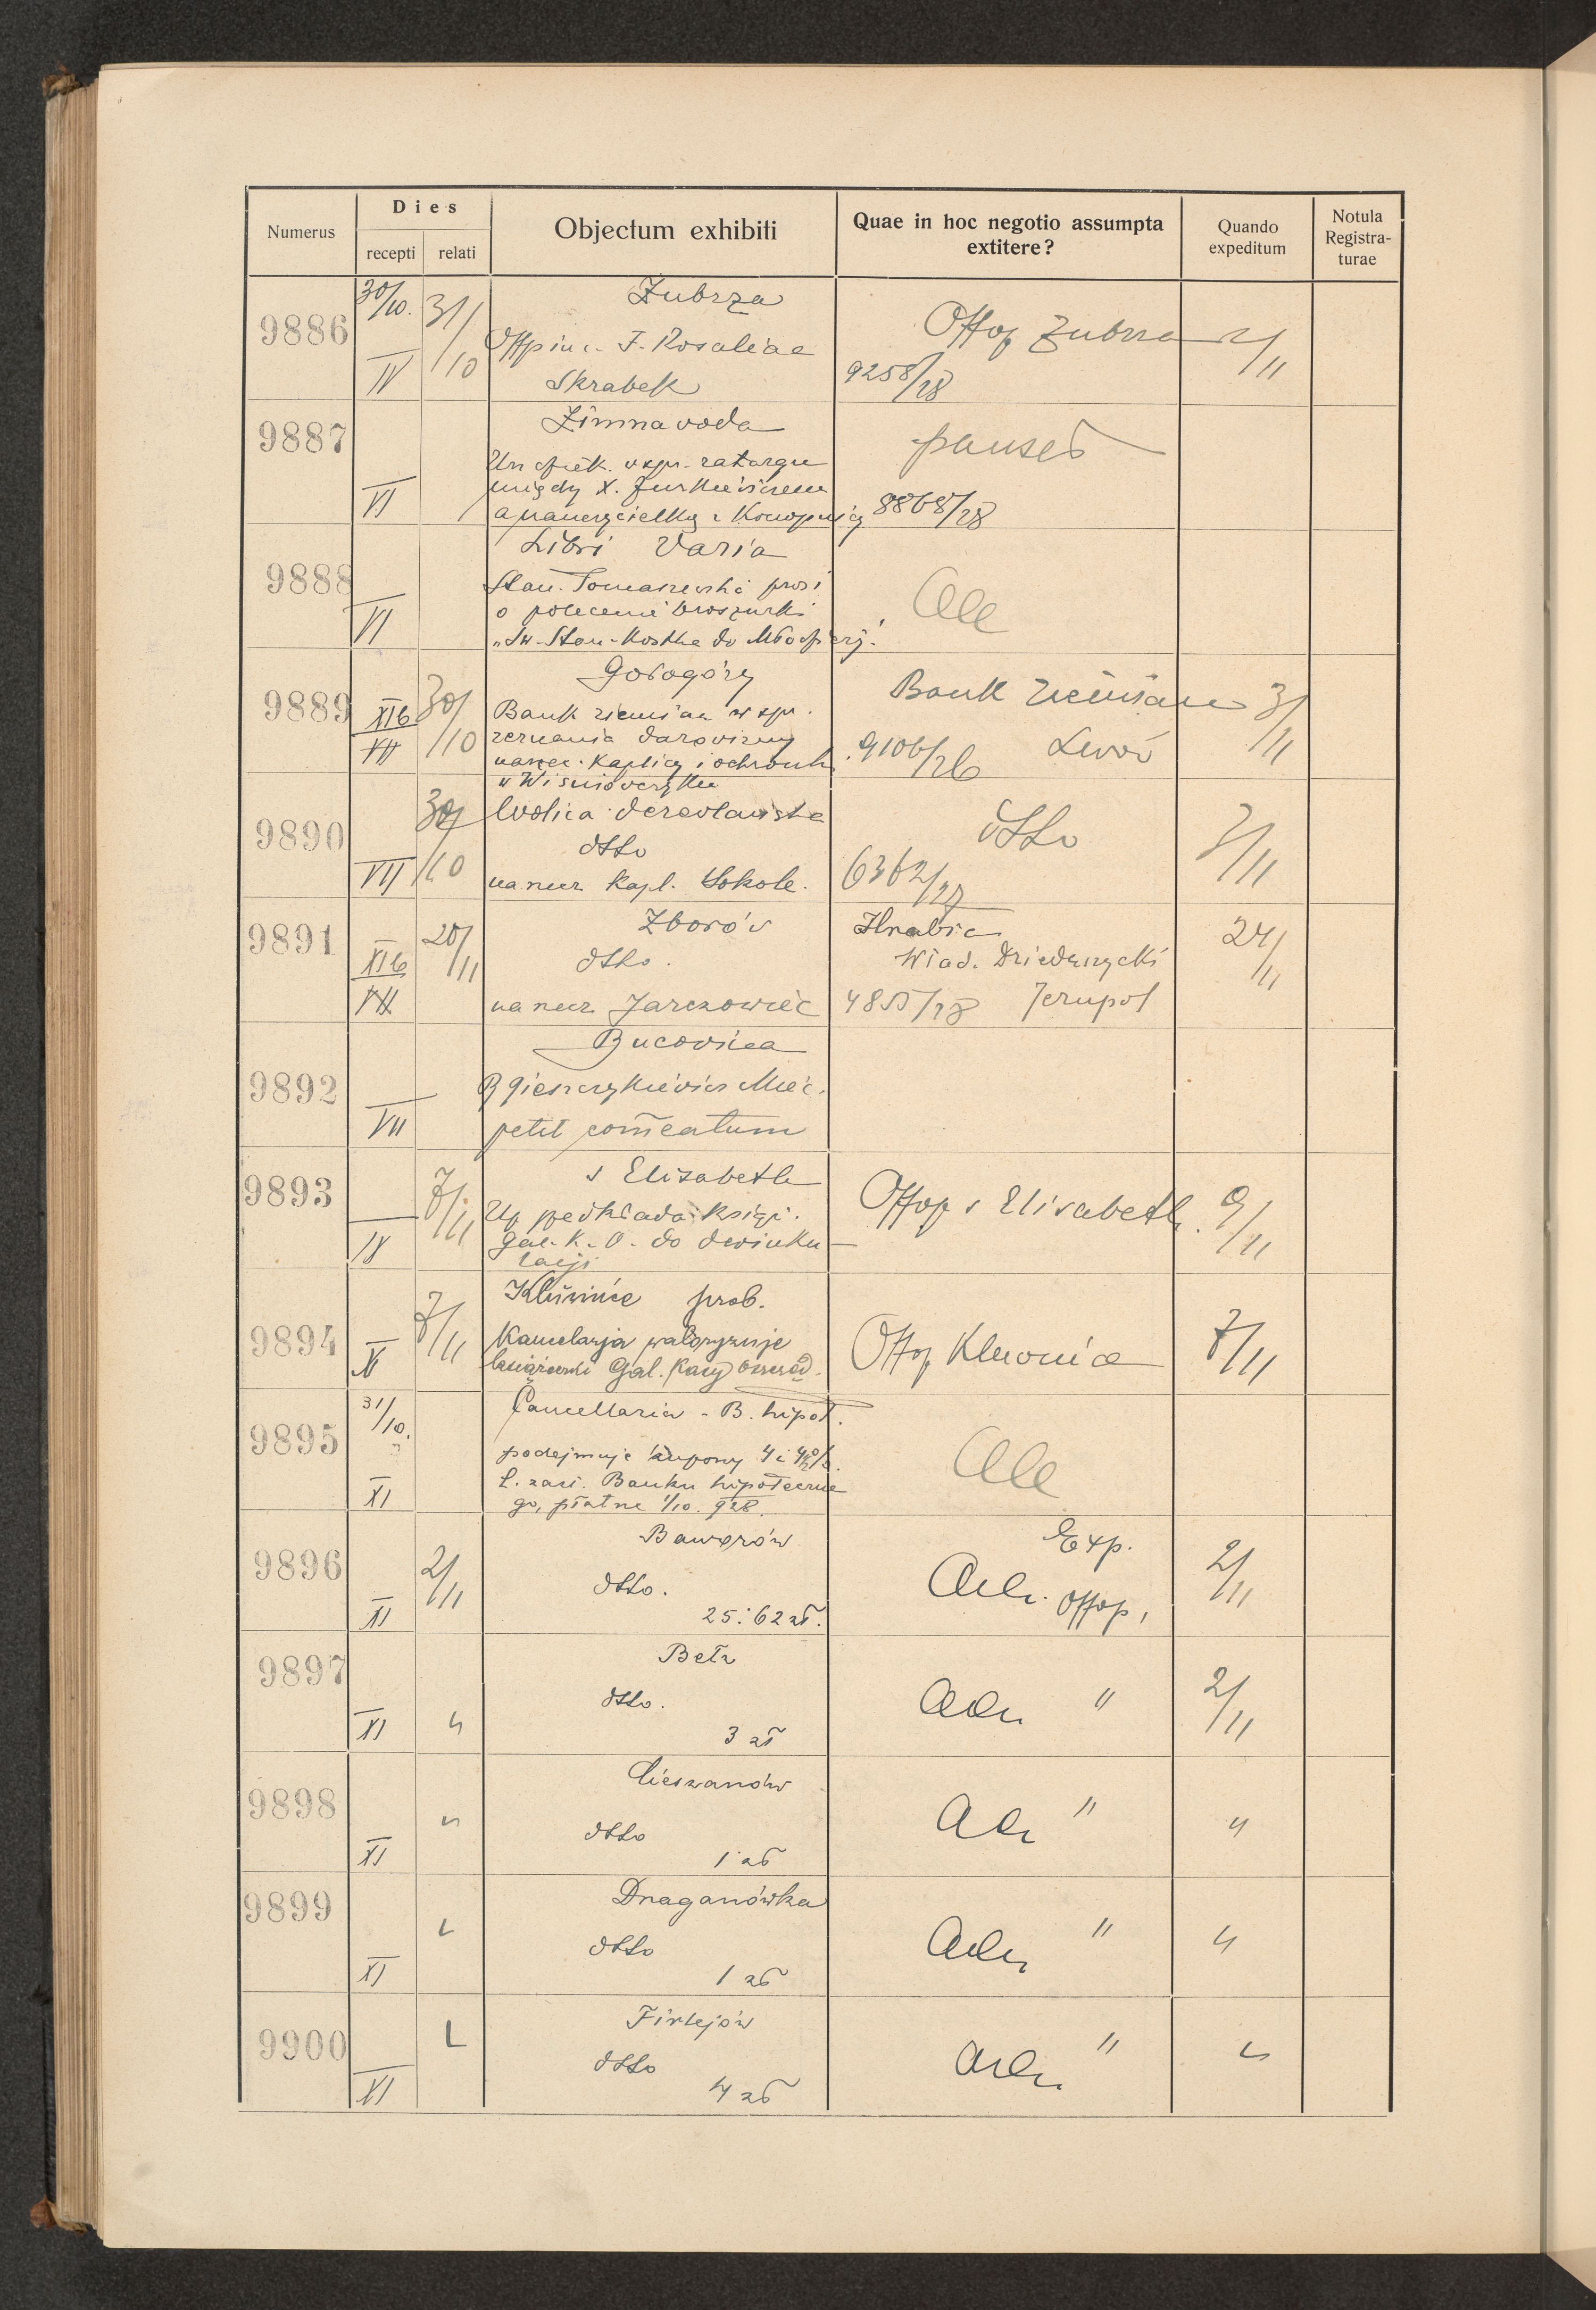 Numerus
Dies
recepti relati
Objectum exhibiti
Quae in hoc negotio assumpta
extitere?
Quando
expeditum
Notula
Registra-
turae
9886
30/10. 31/10
IV
Zubrza
Offpin c. F. Rosaliae
Skrabek
Offop Zubrza
9258/28
2/11
9887
VI
Zimnavoda
Urz opiek. w spr. zatargu
między X.
a nauczycielką z Konopnicy
8868/28
9888
VI
Libri Varia
Stan. Tomaszewski prosi
o polecenie broszurki
„Św. Stan. Kostka do Młodzieży".
9889
XIb 30/10
VII
Gołogóry
Bank ziemian w spr.
zeznania darowizny
na rzec. Kaplicy i ochronki
w Wiśniowczyku
Bank ziemian
9106/26 Lwów
3/11
9890
30/10
VII
Wolica derewlańska
dtto
na rzecz Kapl. Sokole.
dtto
6362/28
3/11
9891
XIb 20/11
VII
Zborów
dtto.
na rzecz Jarczowiec
Hrabia
Wład. Dzieduszycki
4855/28 Jezupol
24/11
9892
VII
Bucovina
petit comeatum
9893
7/11
IX
s Elizabeth
Up przedkłada książ.
Gal. K. O. do dewinku-
lacji
Offop s Elisabeth.
9/11
9894
7/11
XI
Kluwińce prob.
Kancelarja waloryzuje
książeczki Gal. Kasy Oszczęd.
Offop Kluwińce
7/11
9895
31/10.
XI
Cancellaria - B. hipot.
podejmuje kupony 4 i 4½%.
L. zast. Banku hipoteczne
go, płatne 1/10. 928.
9896
2/11
XI
Baworów
dtto.
25:62 zł.
Exp.
Offop,
2/11
9897
XI "
Bełz
dtto.
3 zł
"
2/11
9898
XI "
Cieszanów
dtto
1 zł
"
"
9899
XI "
Draganówka
dtto
1 zł
"
"
9900
XI "
Firlejów
dtto
4 zł
"
"